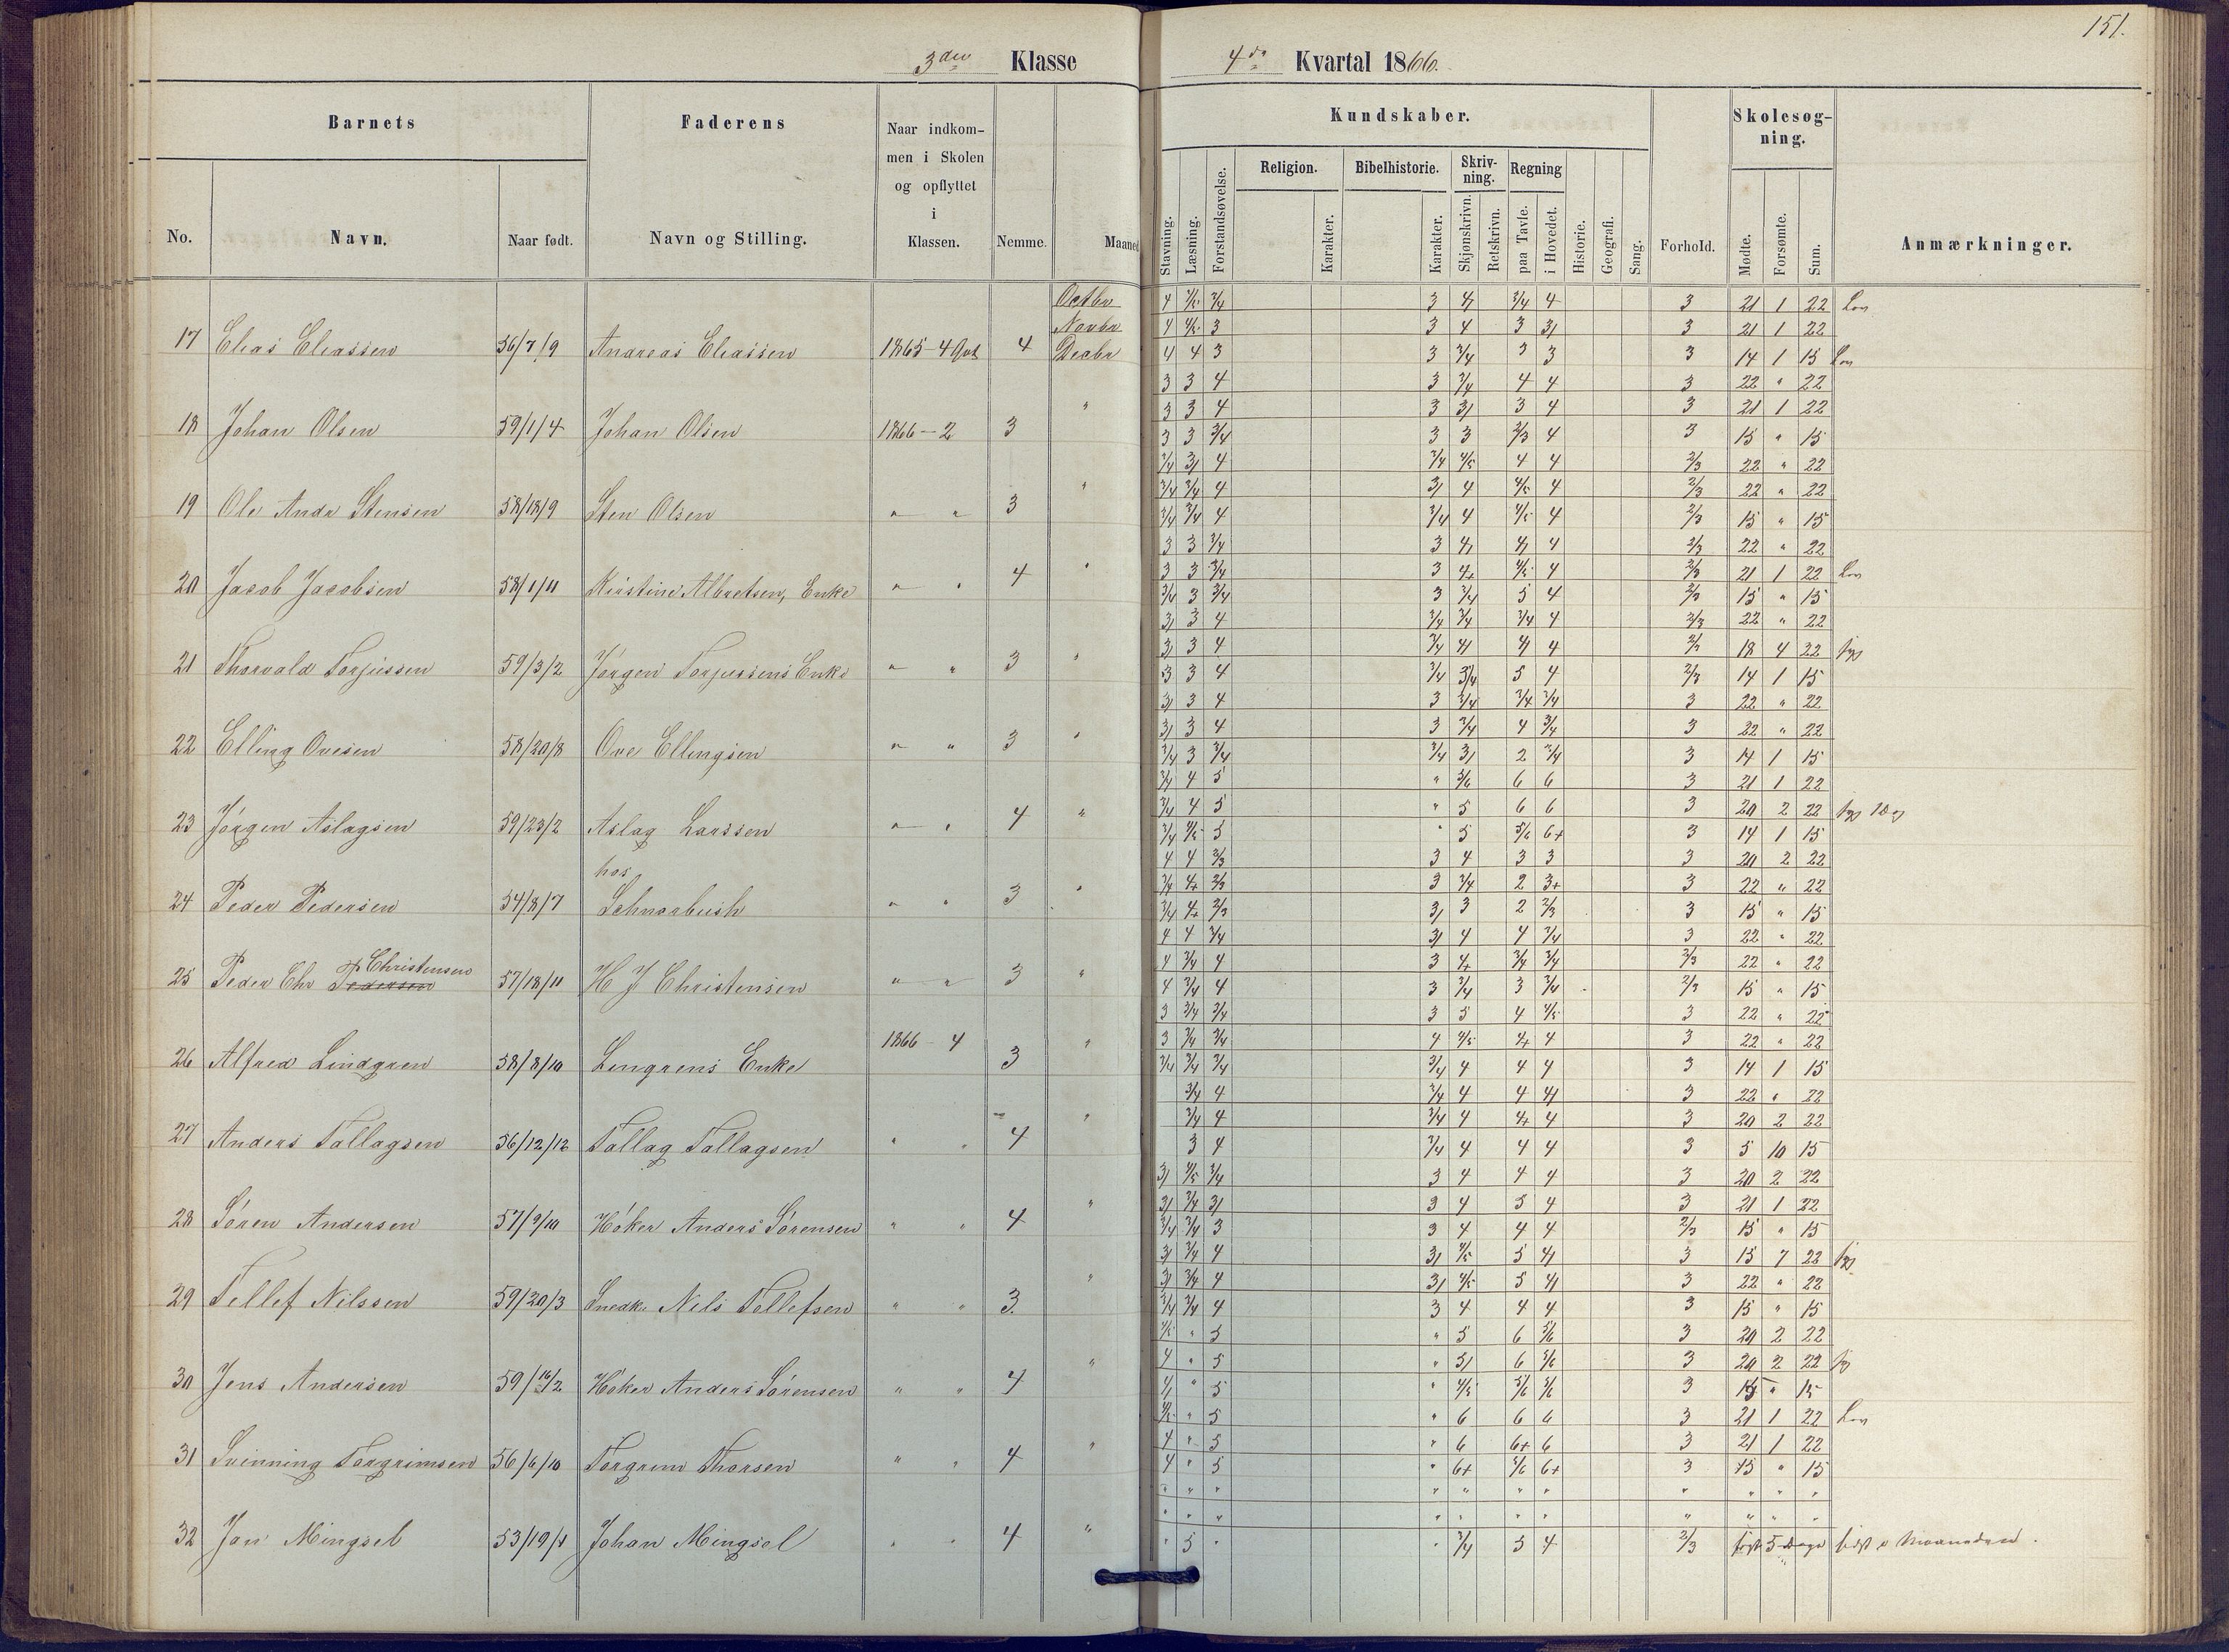 151.
3die Klasse
4de Kvartal 1866.
Barnets
Faderens
Naar indkom-
men i Skolen
og opflyttet
i
Klassen.
No.
Navn.
Naar født.
Navn og Stilling.
Nemme.
Maaned
Kundskaber.
Stavning.
Læsning.
Forstandsøvelse.
Religion.
Karakter.
Bibelhistorie.
Karakter.
Skriv-
ning.
Skjønskrivn.
Retskrivn.
Regning
paa Tavle.
i Hovedet.
Historie.
Geografi.
Sang.
Forhold.
Skolesøg-
ning.
Mødte.
Forsømte.
Sum.
Anmærkninger.
Octbr
Novbr
17 Elias Eliassen 56/7/9 Andreas Eliassen 1865-4 Qvt 4 Decbr
18 Johan Olsen 59/1/4 Johan Olsen 1866-2 3 "
19 Ole Andr Stensen 58/18/9 Sten Olsen " " 3 "
20 Jacob Jacobsen 58/1/11 Kirstine Albretsen, Enke " " 4 "
21 Thorvald Torjussen 59/3/2 Jörgen Torjussens Enke " " 3 "
22 Elling Ovesen 58/20/8 Ove Ellingsen " " 3 "
23 Jörgen Aslagsen 59/23/2 Aslag Larssen " " 4 "
hos
24 Peder Pedersen 54/8/7 Schnorbush " " 3 "
Christensen
25 Peder Chr Pedersen 57/18/11 H J Christensen " " 3 "
26 Alfred Lindgren 58/8/10 Lingrens Enke 1866-4 3 "
27 Anders Tallagsen 56/12/12 Tallag Tallagsen " " 4 "
28 Sören Andersen 57/9/10 Höker Anders Sörensen " " 4 "
29 Tellef Nilssen 59/20/3 Snedk. Nils Tellefsen " " 3. "
30 Jens Andersen 59/16/2 Höker Anders Sörensen " " 4 "
31 Svinning Torgrimsen 56/6/10 Torgrim Thorsen " " 4 "
32 Jan Mingsel 53/19/1 Johan Mingsel " " 4 "
4 4/5 3/4 3 4/ 3/4 4 3 21 1 22
4 4/5 3 3 4 3 3/ 3 21 1 22
4 4 3 3 3/4 3 3 3 14 1 15
3 3 4 3 3/4 4 4 3 22 " 22
3 3 4 3 3/ 3 4 3 21 1 22
3 3 3/4 3 3 2/3 4 3 15 " 15
3/4 3/ 4 3/4 4/5 4 4 2/3 22 " 22
3/4 3/4 4 3/ 4 4/5 4 2/3 22 " 22
3/4 3/4 4 3/4 4 4/5 4 2/3 15 " 15
3 3 3/4 3 4/ 4/ 4 2/3 22 " 22
3 3 3/4 3 4+ 4/5 4 2/3 21 1 22
3/4 3 3/4 3 3/4 5 4 2/3 15 " 15
3/ 3 4 3/4 3/4 3/4 4 2/3 22 " 22
3/ 3 4 3/4 4/ 4/ 4 2/3 18 4 22
3 3 4 3/4 3/4 5 4 2/3 14 1 15
3/ 3 4 3 3/4 3/4 3/4 3 22 " 22
3/ 3 4 3 3/4 4 3/4 3 22 " 22
3/4 3 3/4 3/4 3/ 2 3/4 3 14 1 15
3/4 4 5 " 5/6 6 6 3 21 1 22
3/4 4 5 " 5 6 6 3 20 2 22
3/4 4/5 5 " 5 5/6 6+ 3 14 1 15
4 4 2/3 3 4 3 3 3 20 2 22
3/4 4+ 2/3 3 3/4 2 3+ 3 22 " 22
3/4 4+ 2/3 3/ 3 2 2/3 3 15 " 15
4 4 3/4 3/ 4 4 3/4 3 22 " 22
4 3/4 4 3 4+ 3/4 3/4 2/3 22 " 22
4 3/4 4 3 3/4 3 3/4 2/3 15 " 15
3 3/4 3/4 3 5 4 4/5 3 22 " 22
3 3/4 3/4 4 4/5 4+ 4 3 22 " 22
3/4 3/4 3/4 3/4 4 4 4 3 14 1 15
3/4 4 3/4 4 4 4/ 3 22 " 22
3/4 4 3/4 4 4+ 4 3 20 2 22
3 4 3/4 4 4 4 3 5 10 15
3/ 4/5 3/4 3 4 4 4 3 20 2 22
3/ 3/4 3/ 3 4 5 4 3 21 1 22
3/4 3/4 3 3 4 4 4 2/3 15 " 15
3/ 3/4 4 3/ 4/5 5 4/ 3 15 7 22
3/ 3/4 4 3/ 4/5 5 4/ 3 22 " 22
3/4 3/4 4 3 4 4 4 3 15 " 15
4/5 " 5 " 5 6 5/6 3 20 2 22
4 " 5 " 5/ 6 5/6 3 20 2 22
4/ " 5 " 4/5 5/6 5/6 3 15 " 15
4/5 " 5 " 6 6 6 3 21 1 22
4 " 5 " 6 6+ 6 3 21 1 22
4 " 5 " 6+ 5/6 6+ 3 15 " 15
" " " " " " " " " " "
" " " " " " " " " " "
" 5 " " 3/4 5 4 2/3 5 Dage Maaneden.